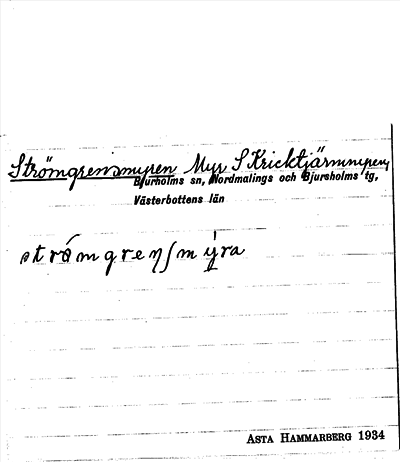 Strömgrensmyren Myr S Kricktjärnmyren
Bjurholms sn, Nordmalings och Bjursholms tg,
Västerbottens län
strómgrenʃmýra
ASTA HAMMARBERG 1934